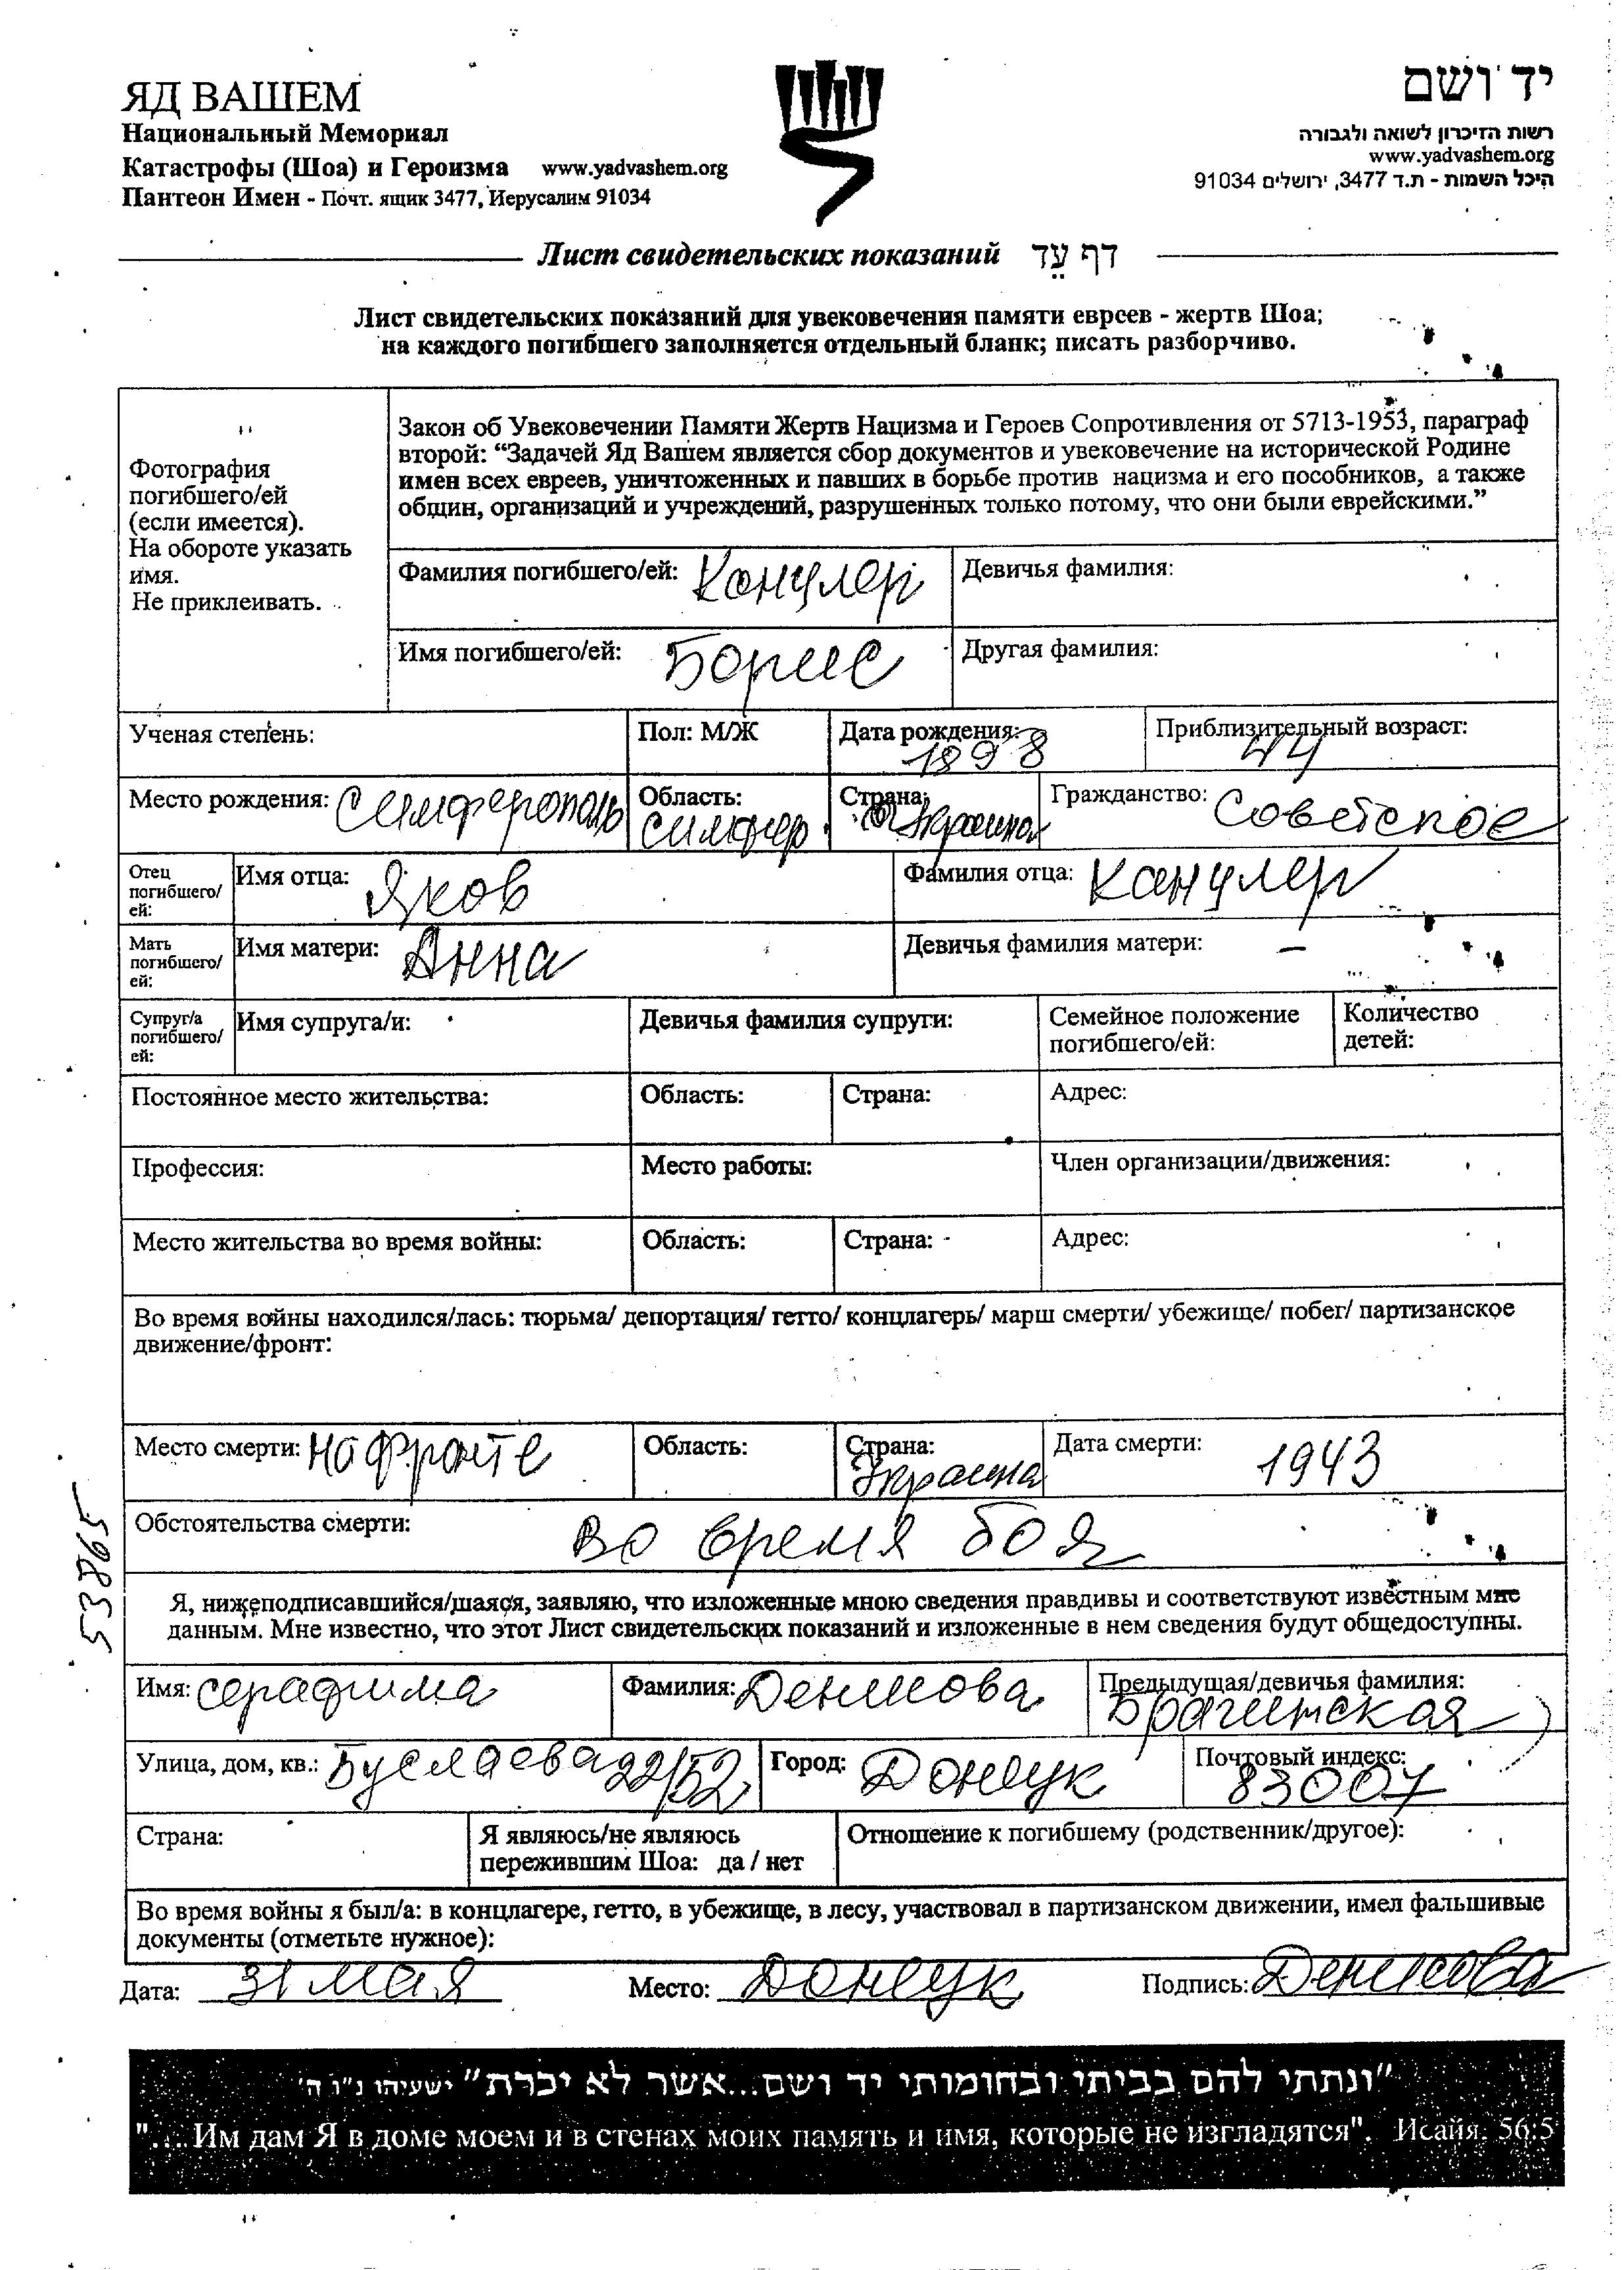 ЯД ВАШЕМ
Национальный Мемориал
Катастрофы (Шоа) и Героизма www.yadvashem.org
Пантеон Имен - Почт. ящик 3477, Иерусалим 91034
יד ושם
רשות הזיכרון לשואה ולגבורה
www.yadvashem.org
היכל השמות - ת.ד 3477, ירושלים 91034
Лист свидетельских показаний דף עֵד
Лист свидетельских показаний для увековечения памяти евреев - жертв Шоа;
на каждого погибшего заполняется отдельный бланк; писать разборчиво.
Фотография
погибшего/ей
(если имеется).
На обороте указать
имя.
Не приклеивать.
Закон об Увековечении Памяти Жертв Нацизма и Героев Сопротивления от 5713-1953, параграф
второй: “Задачей Яд Вашем является сбор документов и увековечение на исторической Родине
имен всех евреев, уничтоженных и павших в борьбе против нацизма и его пособников, а также
общин, организаций и учреждений, разрушенных только потому, что они были еврейскими.”
Фамилия погибшего/ей: Канулер Девичья фамилия:
Имя погибшего/ей: Борис Другая фамилия:
Ученая степень: Пол: М/Ж Дата рождения: 1898 Приблизительный возраст: 44
Место рождения: Симферополь Область: симфер. Страна: Украина Гражданство: Советское
Отец
погибшего/
ей:
Имя отца: Яков Фамилия отца: Канулер
Мать
погибшего/
ей:
Имя матери: Анна Девичья фамилия матери: –
Супруг/а
погибшего/
ей:
Имя супруга/и: Девичья фамилия супруги: Семейное положение
погибшего/ей:
Количество
детей:
Постоянное место жительства: Область: Страна: Адрес:
Профессия: Место работы: Член организации/движения:
Место жительства во время войны: Область: Страна: Адрес:
Во время войны находился/лась: тюрьма/ депортация/ гетто/ концлагерь/ марш смерти/ убежище/ побег/ партизанское
движение/фронт:
Место смерти: на фронте Область: Страна: Украина Дата смерти: 1943
Обстоятельства смерти: во время боя
53865
Я, нижеподписавшийся/шаяся, заявляю, что изложенные мною сведения правдивы и соответствуют известным мне
данным. Мне известно, что этот Лист свидетельских показаний и изложенные в нем сведения будут общедоступны.
Имя: Серафима Фамилия: Денисова Предыдущая/девичья фамилия: Брагинская
Улица, дом, кв.: Буслаева 22/52 Город: Донецк Почтовый индекс: 83007
Страна: Я являюсь/не являюсь
пережившим Шоа: да / нет
Отношение к погибшему (родственник/другое):
Во время войны я был/а: в концлагере, гетто, в убежище, в лесу, участвовал в партизанском движении, имел фальшивые
документы (отметьте нужное):
Дата: 31 мая Место: Донецк Подпись: Денисова
"ונתתי להם בביתי ובחומותי יד ושם...אשר לא יכרת" ישעיהו נ"ו ה'
"... Им дам Я в доме моем и в стенах моих память и имя, которые не изгладятся". Исайя, 56:5